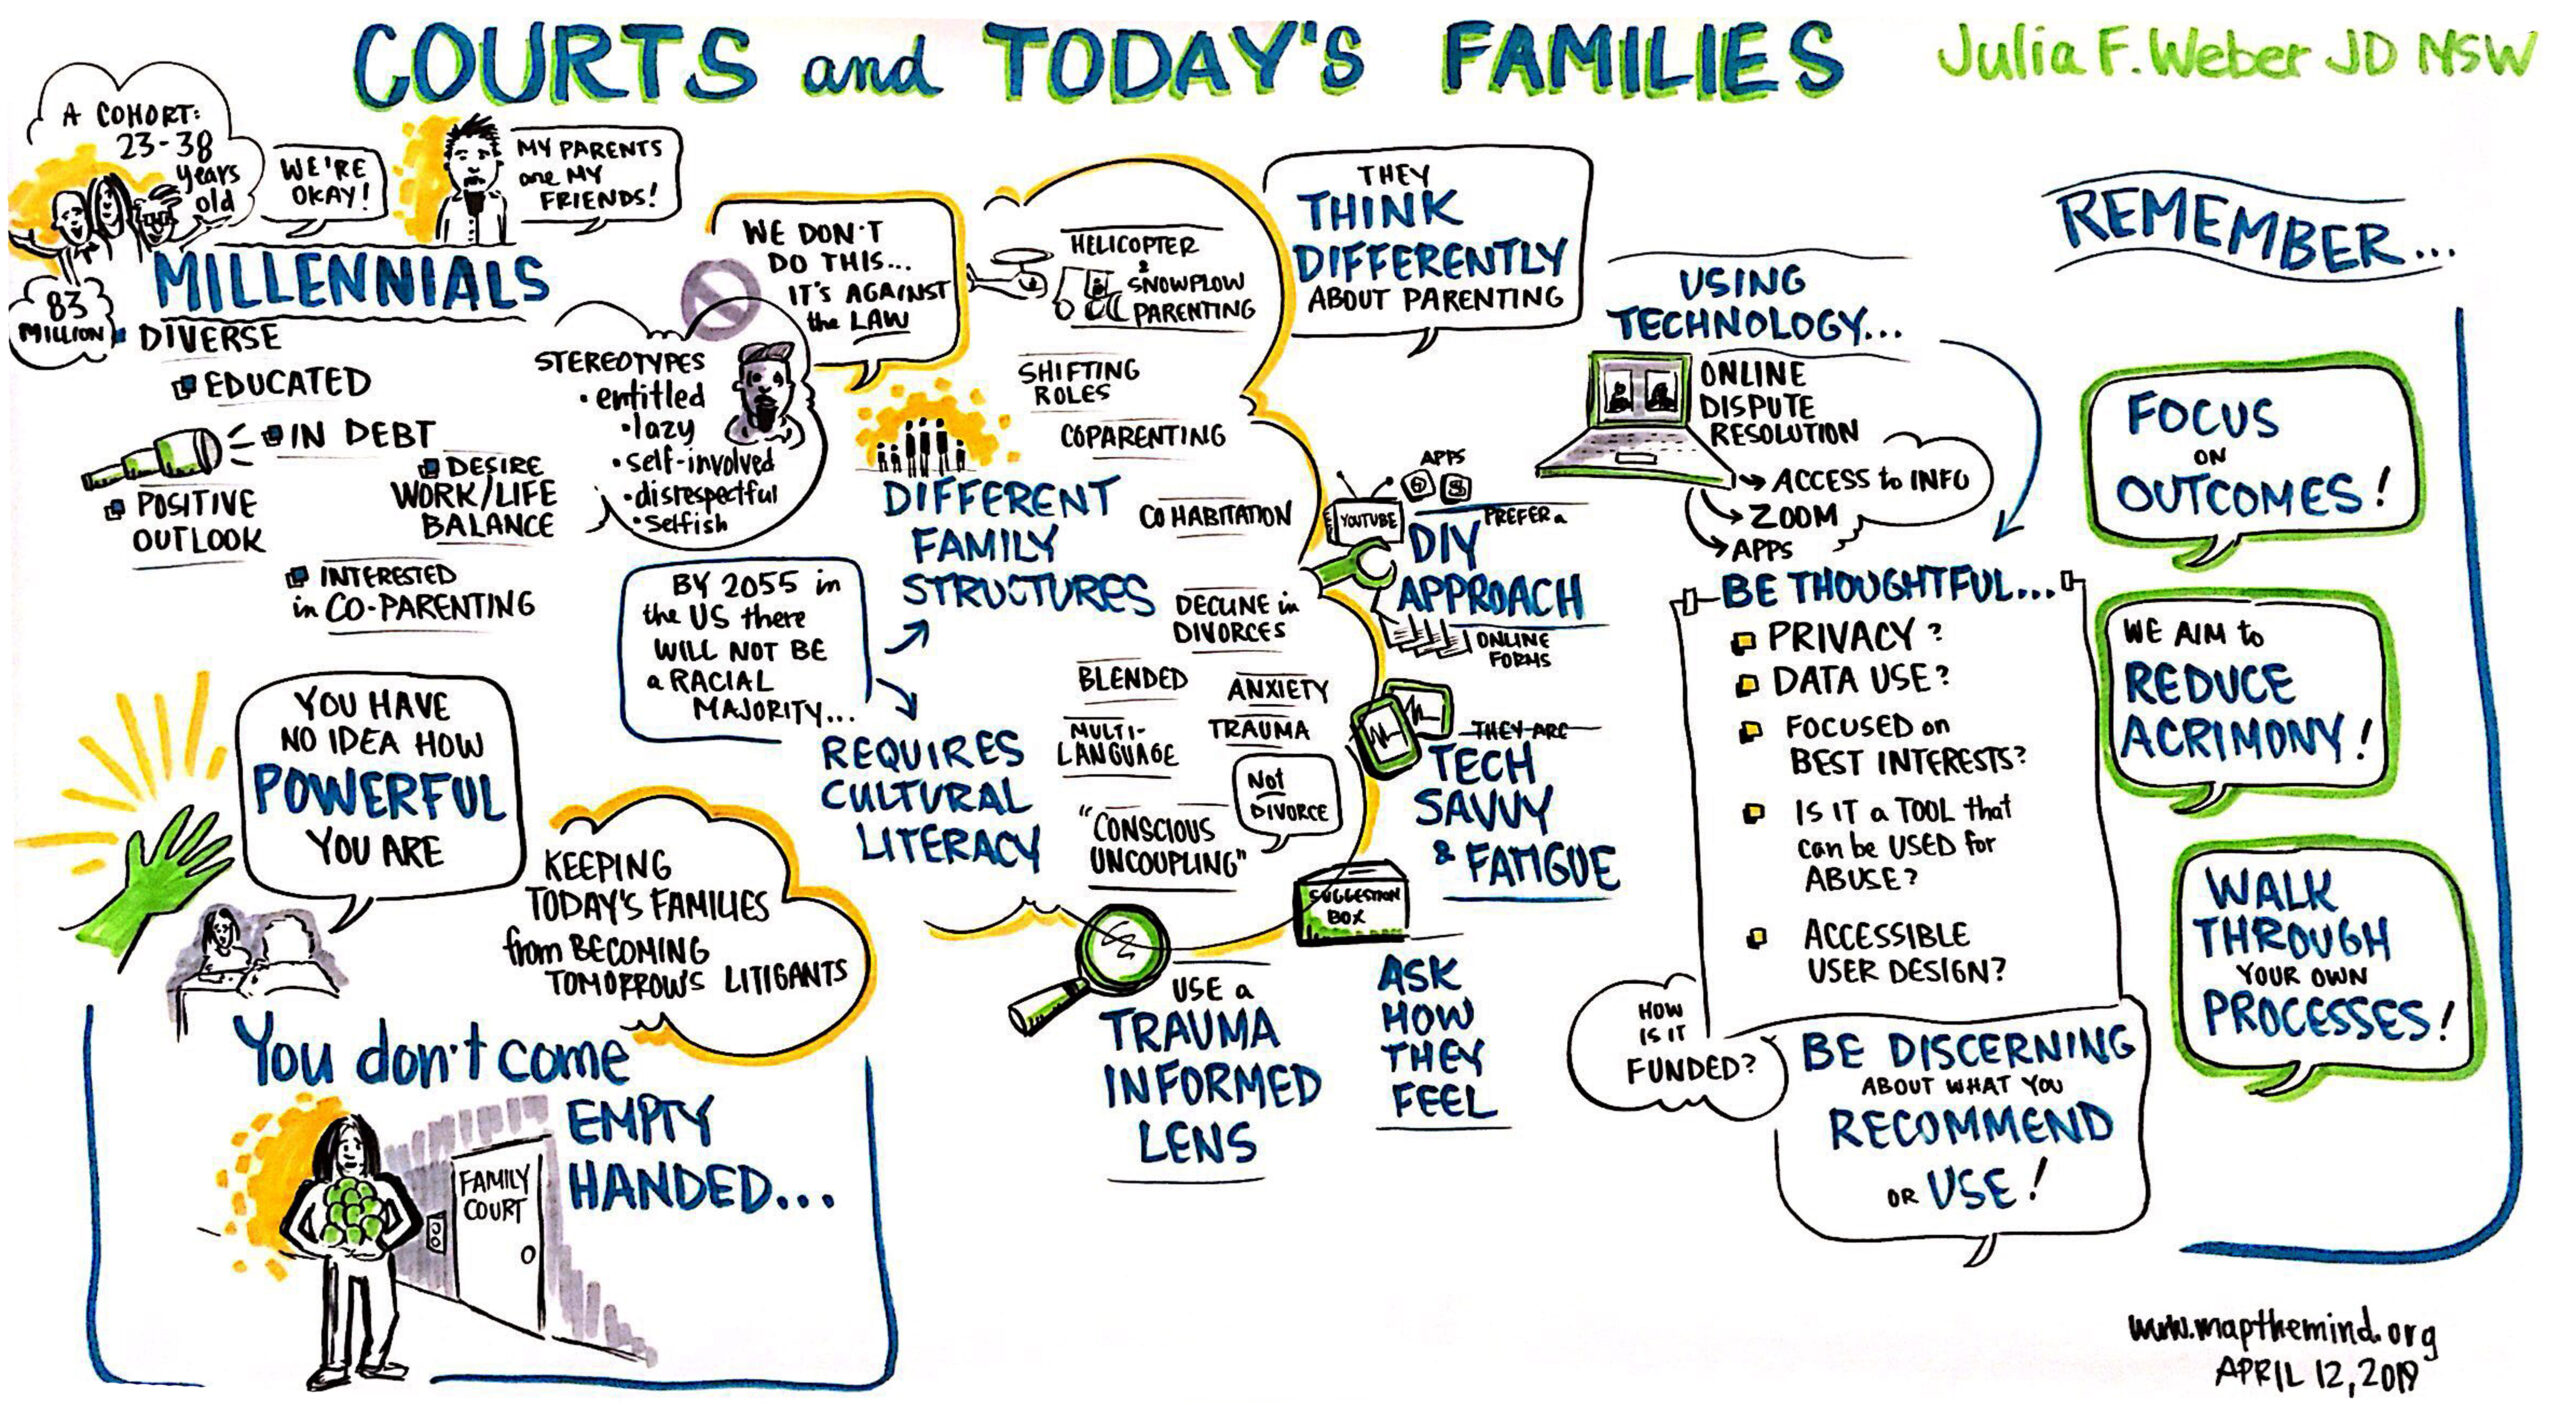 COURTS and TODAY'S FAMILIES
Julia F. Weber JD MSW
A COHORT:
23-38
years
old
WE'RE
OKAY!
MY PARENTS
are MY
FRIENDS!
MILLENNIALS
83
MILLION
DIVERSE
EDUCATED
IN DEBT
POSITIVE
OUTLOOK
DESIRE
WORK/LIFE
BALANCE
INTERESTED
in CO-PARENTING
STEREOTYPES
• entitled
• lazy
• self-involved
• disrespectful
• selfish
WE DON'T
DO THIS...
IT'S AGAINST
the LAW
YOU HAVE
NO IDEA HOW
POWERFUL
YOU ARE
KEEPING
TODAY'S FAMILIES
from BECOMING
TOMORROW'S LITIGANTS
You don't come
EMPTY
HANDED...
FAMILY
COURT
BY 2055 in
the US there
WILL NOT BE
a RACIAL
MAJORITY...
DIFFERENT
FAMILY
STRUCTURES
REQUIRES
CULTURAL
LITERACY
HELICOPTER
&
SNOWPLOW
PARENTING
SHIFTING
ROLES
COPARENTING
COHABITATION
DECLINE in
DIVORCES
BLENDED
ANXIETY
MULTI-
LANGUAGE
TRAUMA
"CONSCIOUS
UNCOUPLING"
Not
DIVORCE
THEY
THINK
DIFFERENTLY
ABOUT PARENTING
APPS
YOUTUBE
PREFER a
DIY
APPROACH
ONLINE
FORMS
THEY ARE
TECH
SAVVY
& FATIGUE
SUGGESTION
BOX
ASK
HOW
THEY
FEEL
USE a
TRAUMA
INFORMED
LENS
USING
TECHNOLOGY...
ONLINE
DISPUTE
RESOLUTION
ACCESS to INFO
ZOOM
APPS
BE THOUGHTFUL...
PRIVACY?
DATA USE?
FOCUSED on
BEST INTERESTS?
IS IT a TOOL that
can be USED for
ABUSE?
ACCESSIBLE
USER DESIGN?
HOW
IS IT
FUNDED?
BE DISCERNING
ABOUT WHAT YOU
RECOMMEND
OR USE!
REMEMBER...
FOCUS
ON
OUTCOMES!
WE AIM to
REDUCE
ACRIMONY!
WALK
THROUGH
YOUR OWN
PROCESSES!
www.mapthemind.org
APRIL 12, 2019